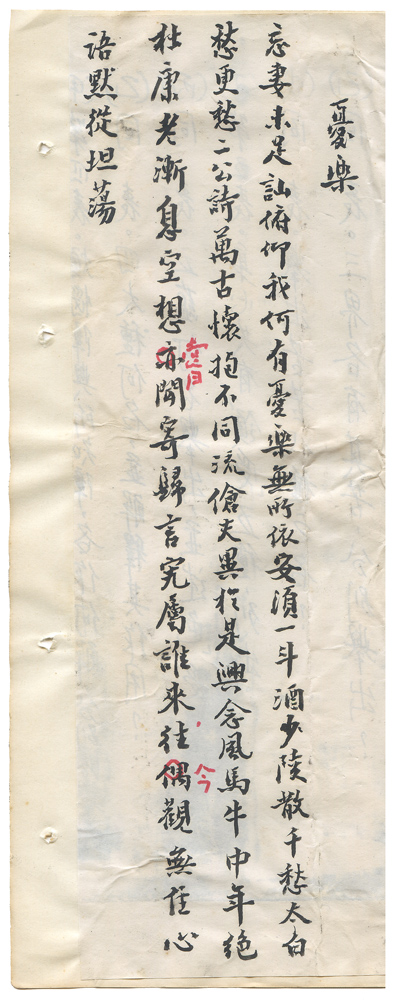 憂樂
忘妻未足訕俯仰我何有憂樂無所依安須一斗酒少陵散千愁太白
愁更愁二公詩萬古懷抱不同流傖夫異於是興念風馬牛中年絕
杜康老漸息空想亦聞寄歸言究屬誰來往偶觀無住心
今
語默從坦蕩